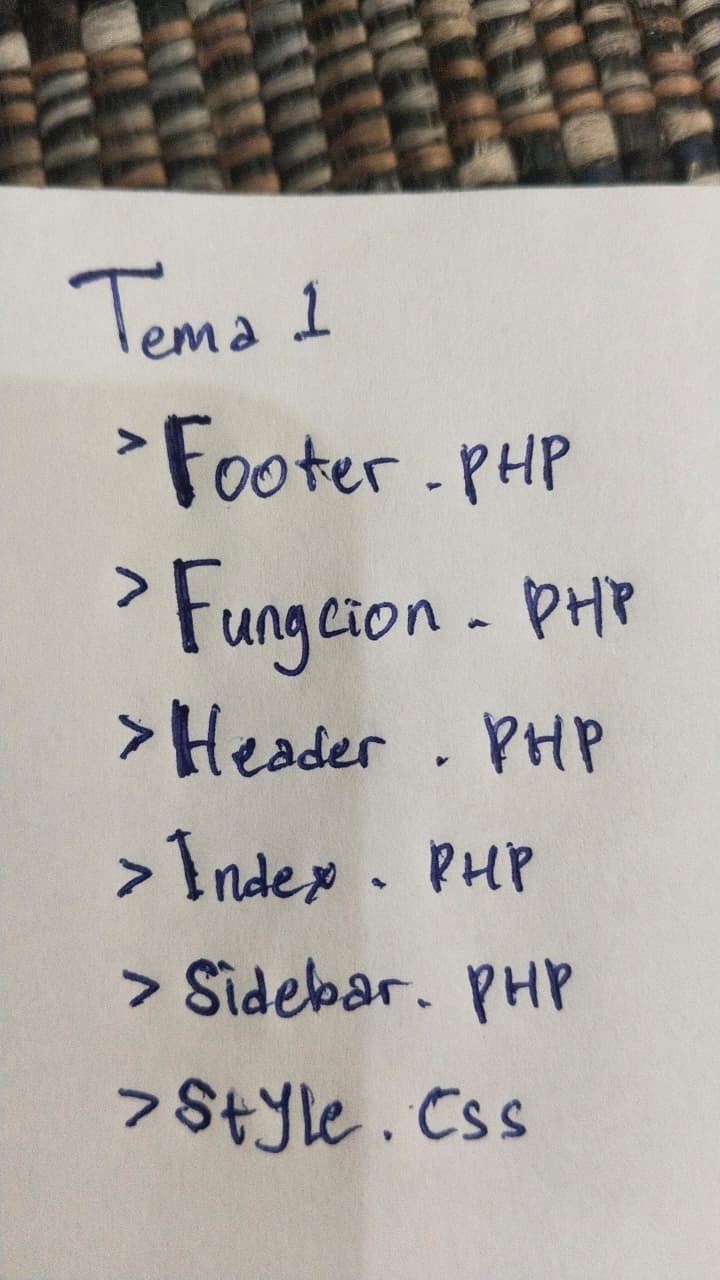 Tema 1
> Footer.PHP
> Fungcion.PHP
> Header.PHP
> Index.PHP
> Sidebar.PHP
> Style.Css